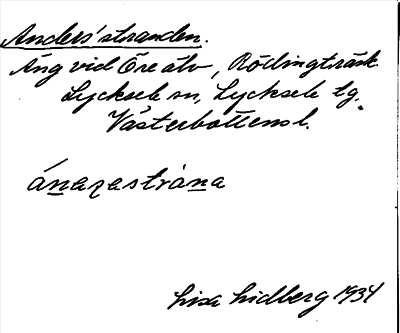 Anders'stranden.
Äng vid Öre älv, Rödingträsk
Lycksele sn, Lycksele lg.
Västerbottens l.
ánazastrána
Lisa Lidberg 1934